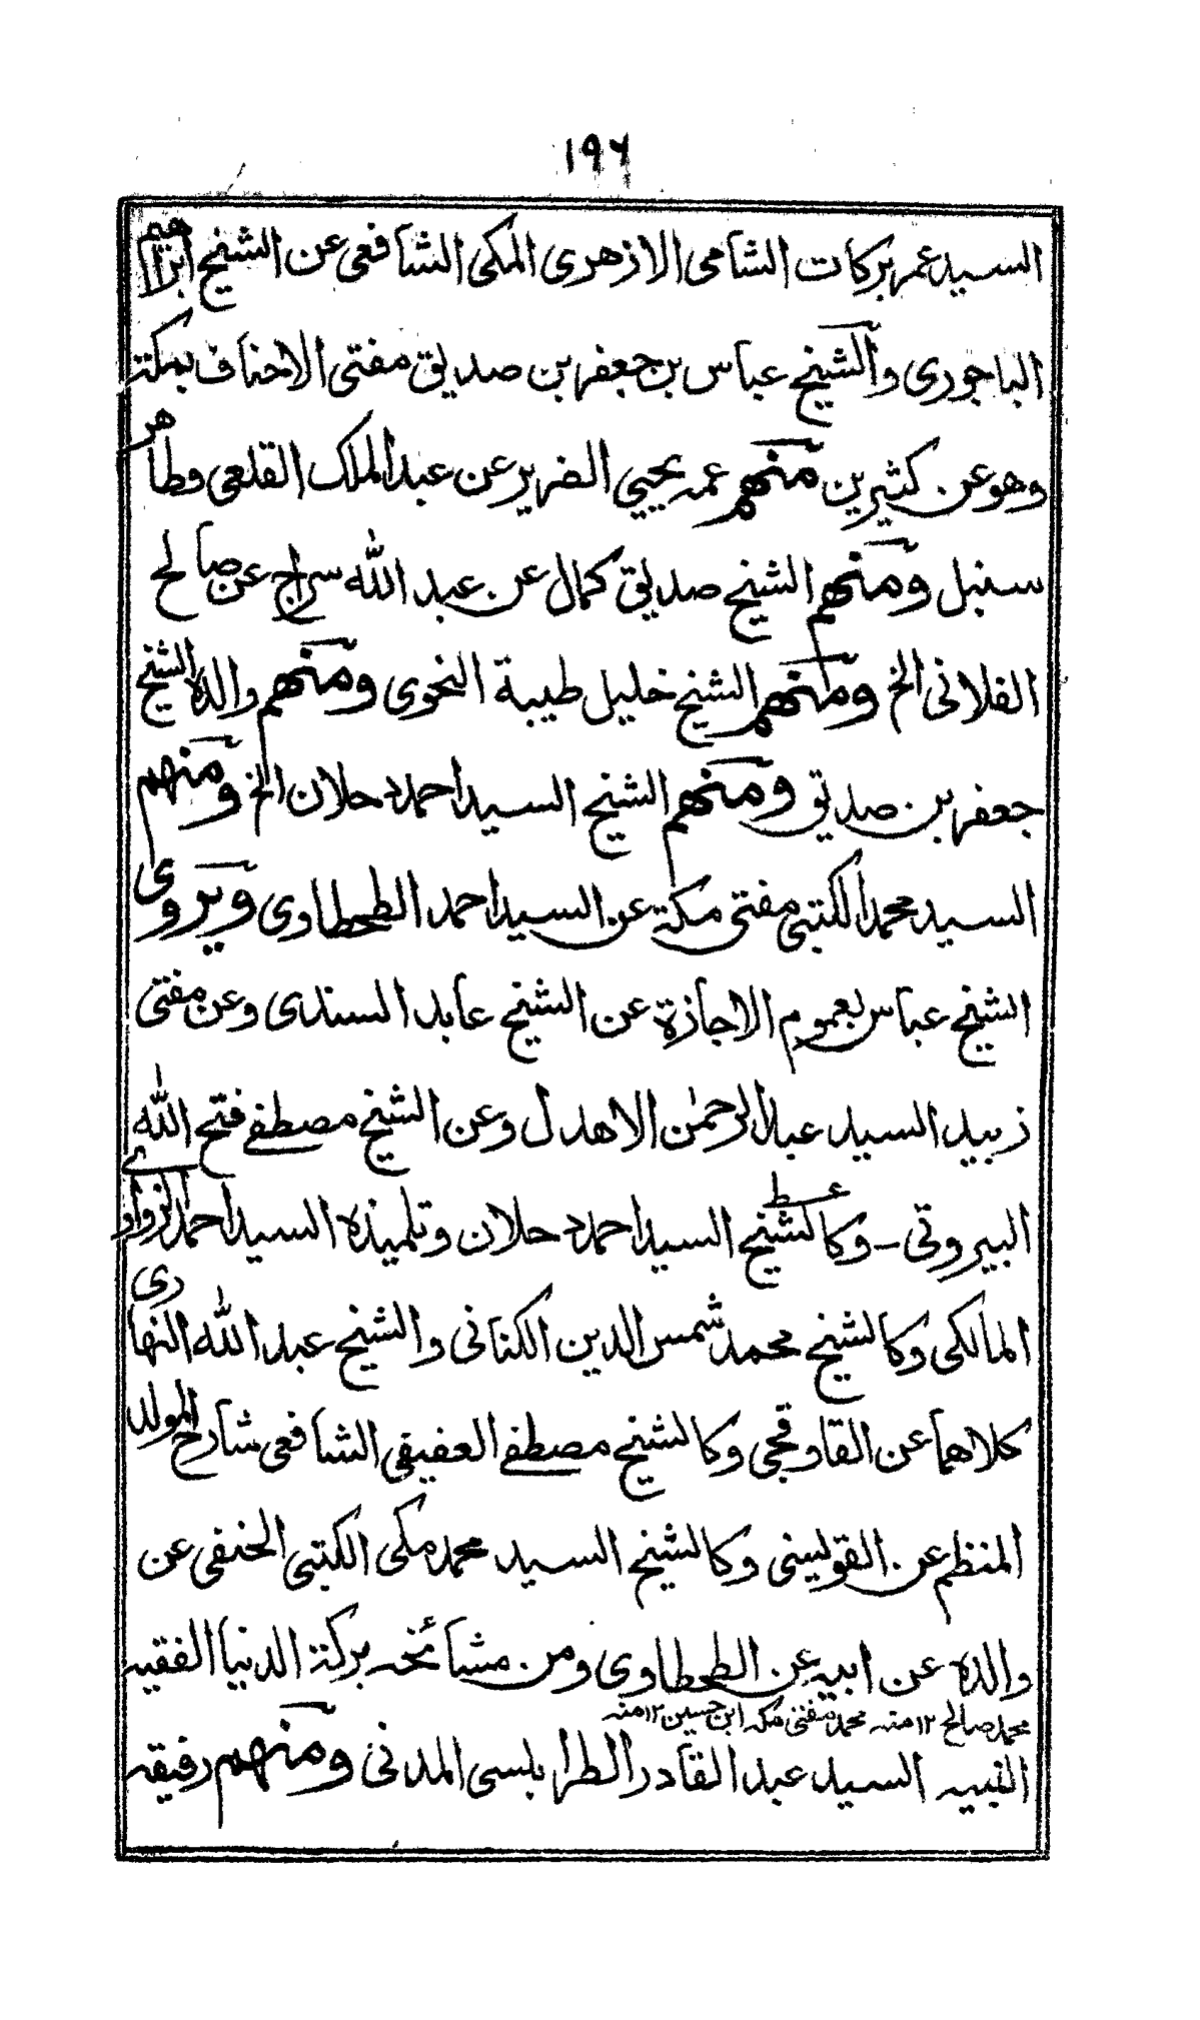 ١٩٦
السيد عمر بركات الشامى الازهرى المكى الشافعى عن الشيخ ابراهيم
الباجورى والشيخ عباس بن جعفر بن صديق مفتى الاحناف بمكة
وهو عن كثيرين منهم عمه يحيي الضرير عن عبد الملك القلعى وطاهر
سنبل ومنهم الشيخ صديق كمال عن عبد الله سراج عن صالح
الفلانى الخ ومنهم الشيخ خليل طيبة النحوى ومنهم والده الشيخ
جعفر بن صديق ومنهم الشيخ السيد احمد دحلان الخ ومنهم
السيد محمد الكتبى مفتى مكة عن السيد احمد الطحطاوى ويروى
الشيخ عباس بعموم الاجازة عن الشيخ عابد السندى وعن مفتى
زبيد السيد عبد الرحمٰن الاهدل وعن الشيخ مصطفے فتح الله
البيروتى - وكالشيخ السيد احمد دحلان وتلميذه السيد احمد الزواوے
المالكى وكالشيخ محمد شمس الدين الكنانى والشيخ عبد الله النهارى
كلاهما عن القاوقجى وكالشيخ مصطفے العفيفى الشافعى شارح المولد
المنظم عن القويسنى وكالشيخ السيد محمد مكى الكتبى الحنفى عن
والده عن ابيه عن الطحطاوى ومن مشائخه بركة الدنيا الفقيه
محمد صالح ١٢ منه محمد مفتى مكه ابن حسين ١٢ منه
النبيه السيد عبد القادر الطرابلسى المدنى ومنهم رفيقه